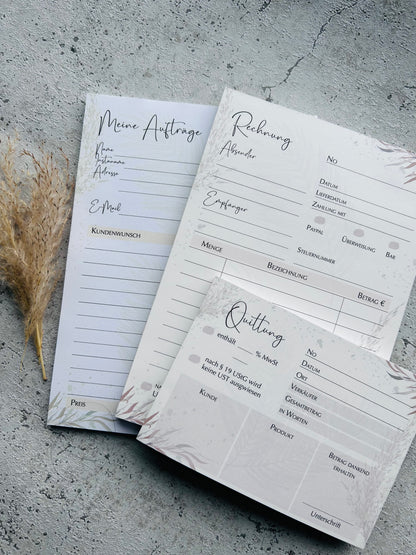 Meine Aufträge
Name
Instaname
Adresse
E-Mail
Kundenwunsch
Preis
Rechnung
Absender
Empfänger
No
Datum
Lieferdatum
Zahlung mit
Paypal
Überweisung
Bar
Steuernummer
Menge
Bezeichnung
Betrag €
Quittung
enthält
% MwSt
nach § 19 UStG wird
keine UST ausgewiesen
No
Datum
Ort
Verkäufer
Gesamtbetrag
in Worten
Kunde
Produkt
Betrag dankend
erhalten
Unterschrift